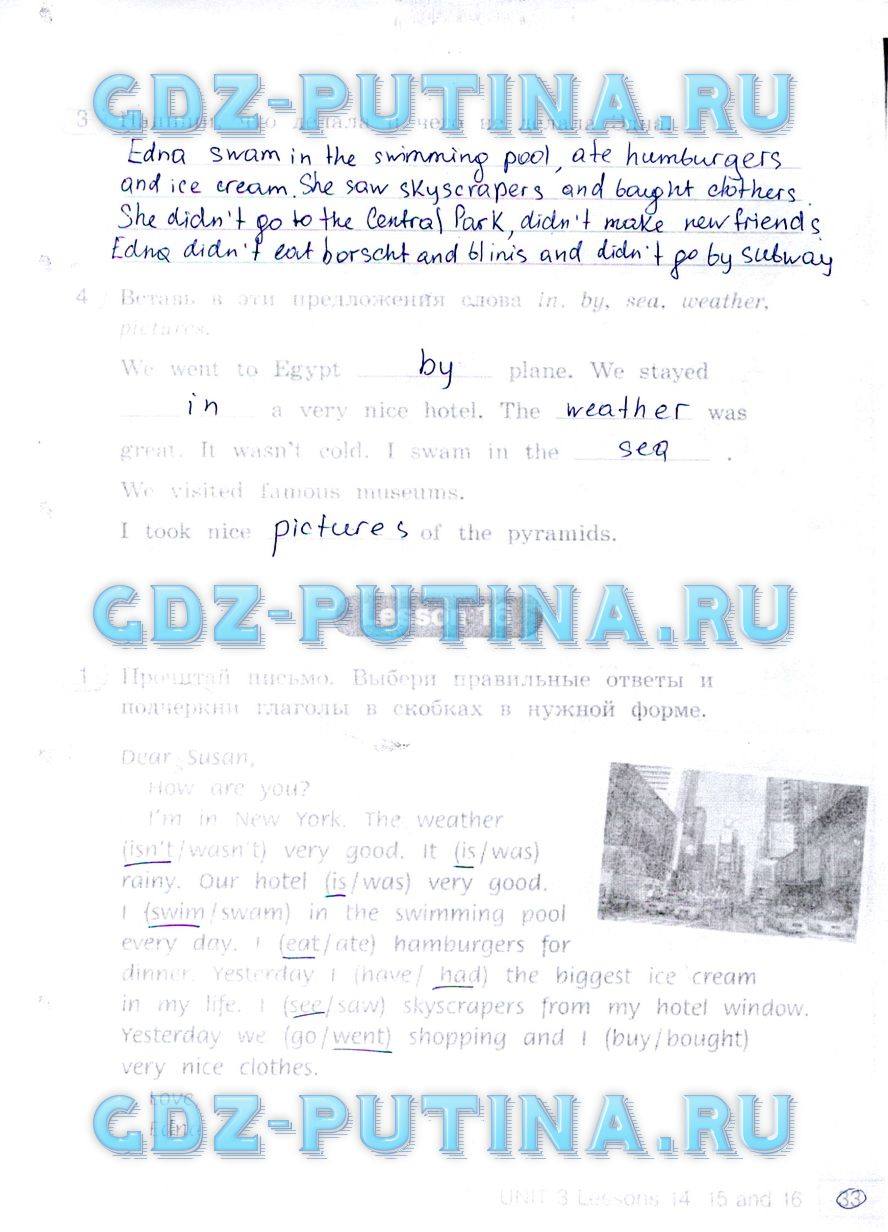 GDZ-PUTINA.RU
3 Напиши, что делала и чего не делала Эдна.
Edna swam in the swimming pool, ate humburgers
and ice cream. She saw skyscrapers and baught clothers.
She didn't go to the Central Park, didn't make new friends.
Edna didn't eat borscht and blinis and didn't go by subway
4 Вставь в эти предложения слова in, by, sea, weather,
pictures.
We went to Egypt by plane. We stayed
in a very nice hotel. The weather was
great. It wasn't cold. I swam in the sea .
We visited famous museums.
I took nice pictures of the pyramids.
GDZ-PUTINA.RU
Lesson 16
1 Прочитай письмо. Выбери правильные ответы и
подчеркни глаголы в скобках в нужной форме.
Dear Susan,
How are you?
I'm in New York. The weather
(isn't/wasn't) very good. It (is/was)
rainy. Our hotel (is/was) very good.
I (swim/swam) in the swimming pool
every day. I (eat/ate) hamburgers for
dinner. Yesterday I (have/ had) the biggest ice cream
in my life. I (see/saw) skyscrapers from my hotel window.
Yesterday we (go/went) shopping and I (buy/bought)
very nice clothes.
Love,
Edna
GDZ-PUTINA.RU
UNIT 3 Lessons 14, 15 and 16 33